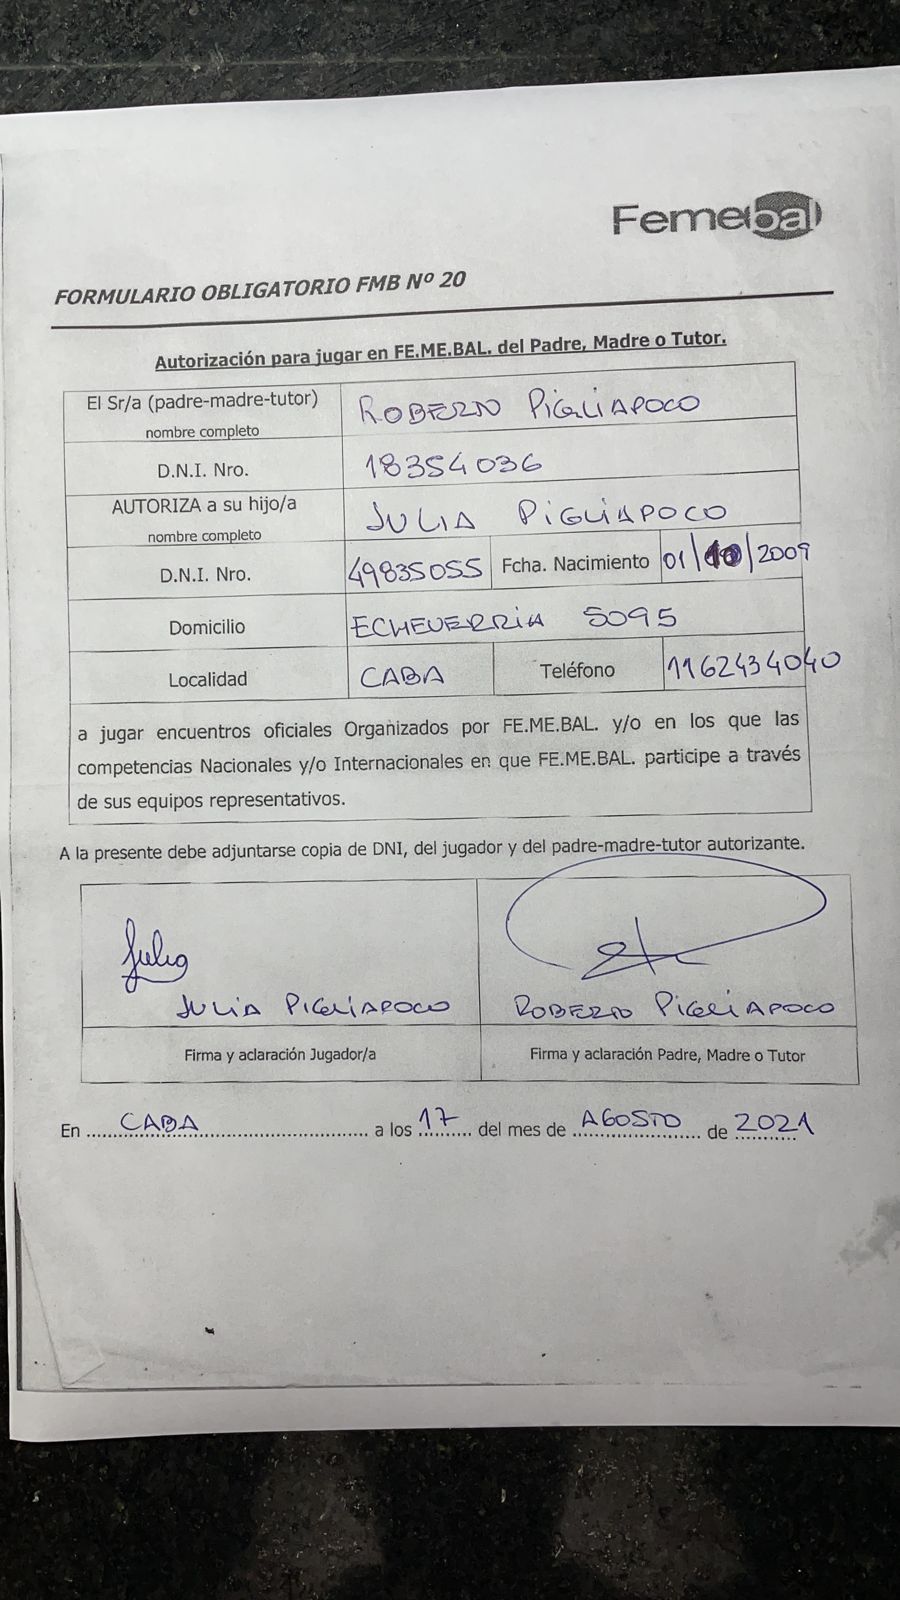 Femebal
FORMULARIO OBLIGATORIO FMB Nº 20
Autorización para jugar en FE.ME.BAL. del Padre, Madre o Tutor.
El Sr/a (padre-madre-tutor) ROBERTO PIGLIAPOCO
nombre completo
D.N.I. Nro. 18354036
AUTORIZA a su hijo/a JULIA PIGLIAPOCO
nombre completo
D.N.I. Nro. 49835055 Fcha. Nacimiento 01/10/2009
Domicilio ECHEVERRIA 5095
Localidad CABA Teléfono 1162434040
a jugar encuentros oficiales Organizados por FE.ME.BAL. y/o en los que las
competencias Nacionales y/o Internacionales en que FE.ME.BAL. participe a través
de sus equipos representativos.
A la presente debe adjuntarse copia de DNI, del jugador y del padre-madre-tutor autorizante.
Julia
JULIA PIGLIAPOCO ROBERTO PIGLIAPOCO
Firma y aclaración Jugador/a Firma y aclaración Padre, Madre o Tutor
En CABA a los 17 del mes de AGOSTO de 2021